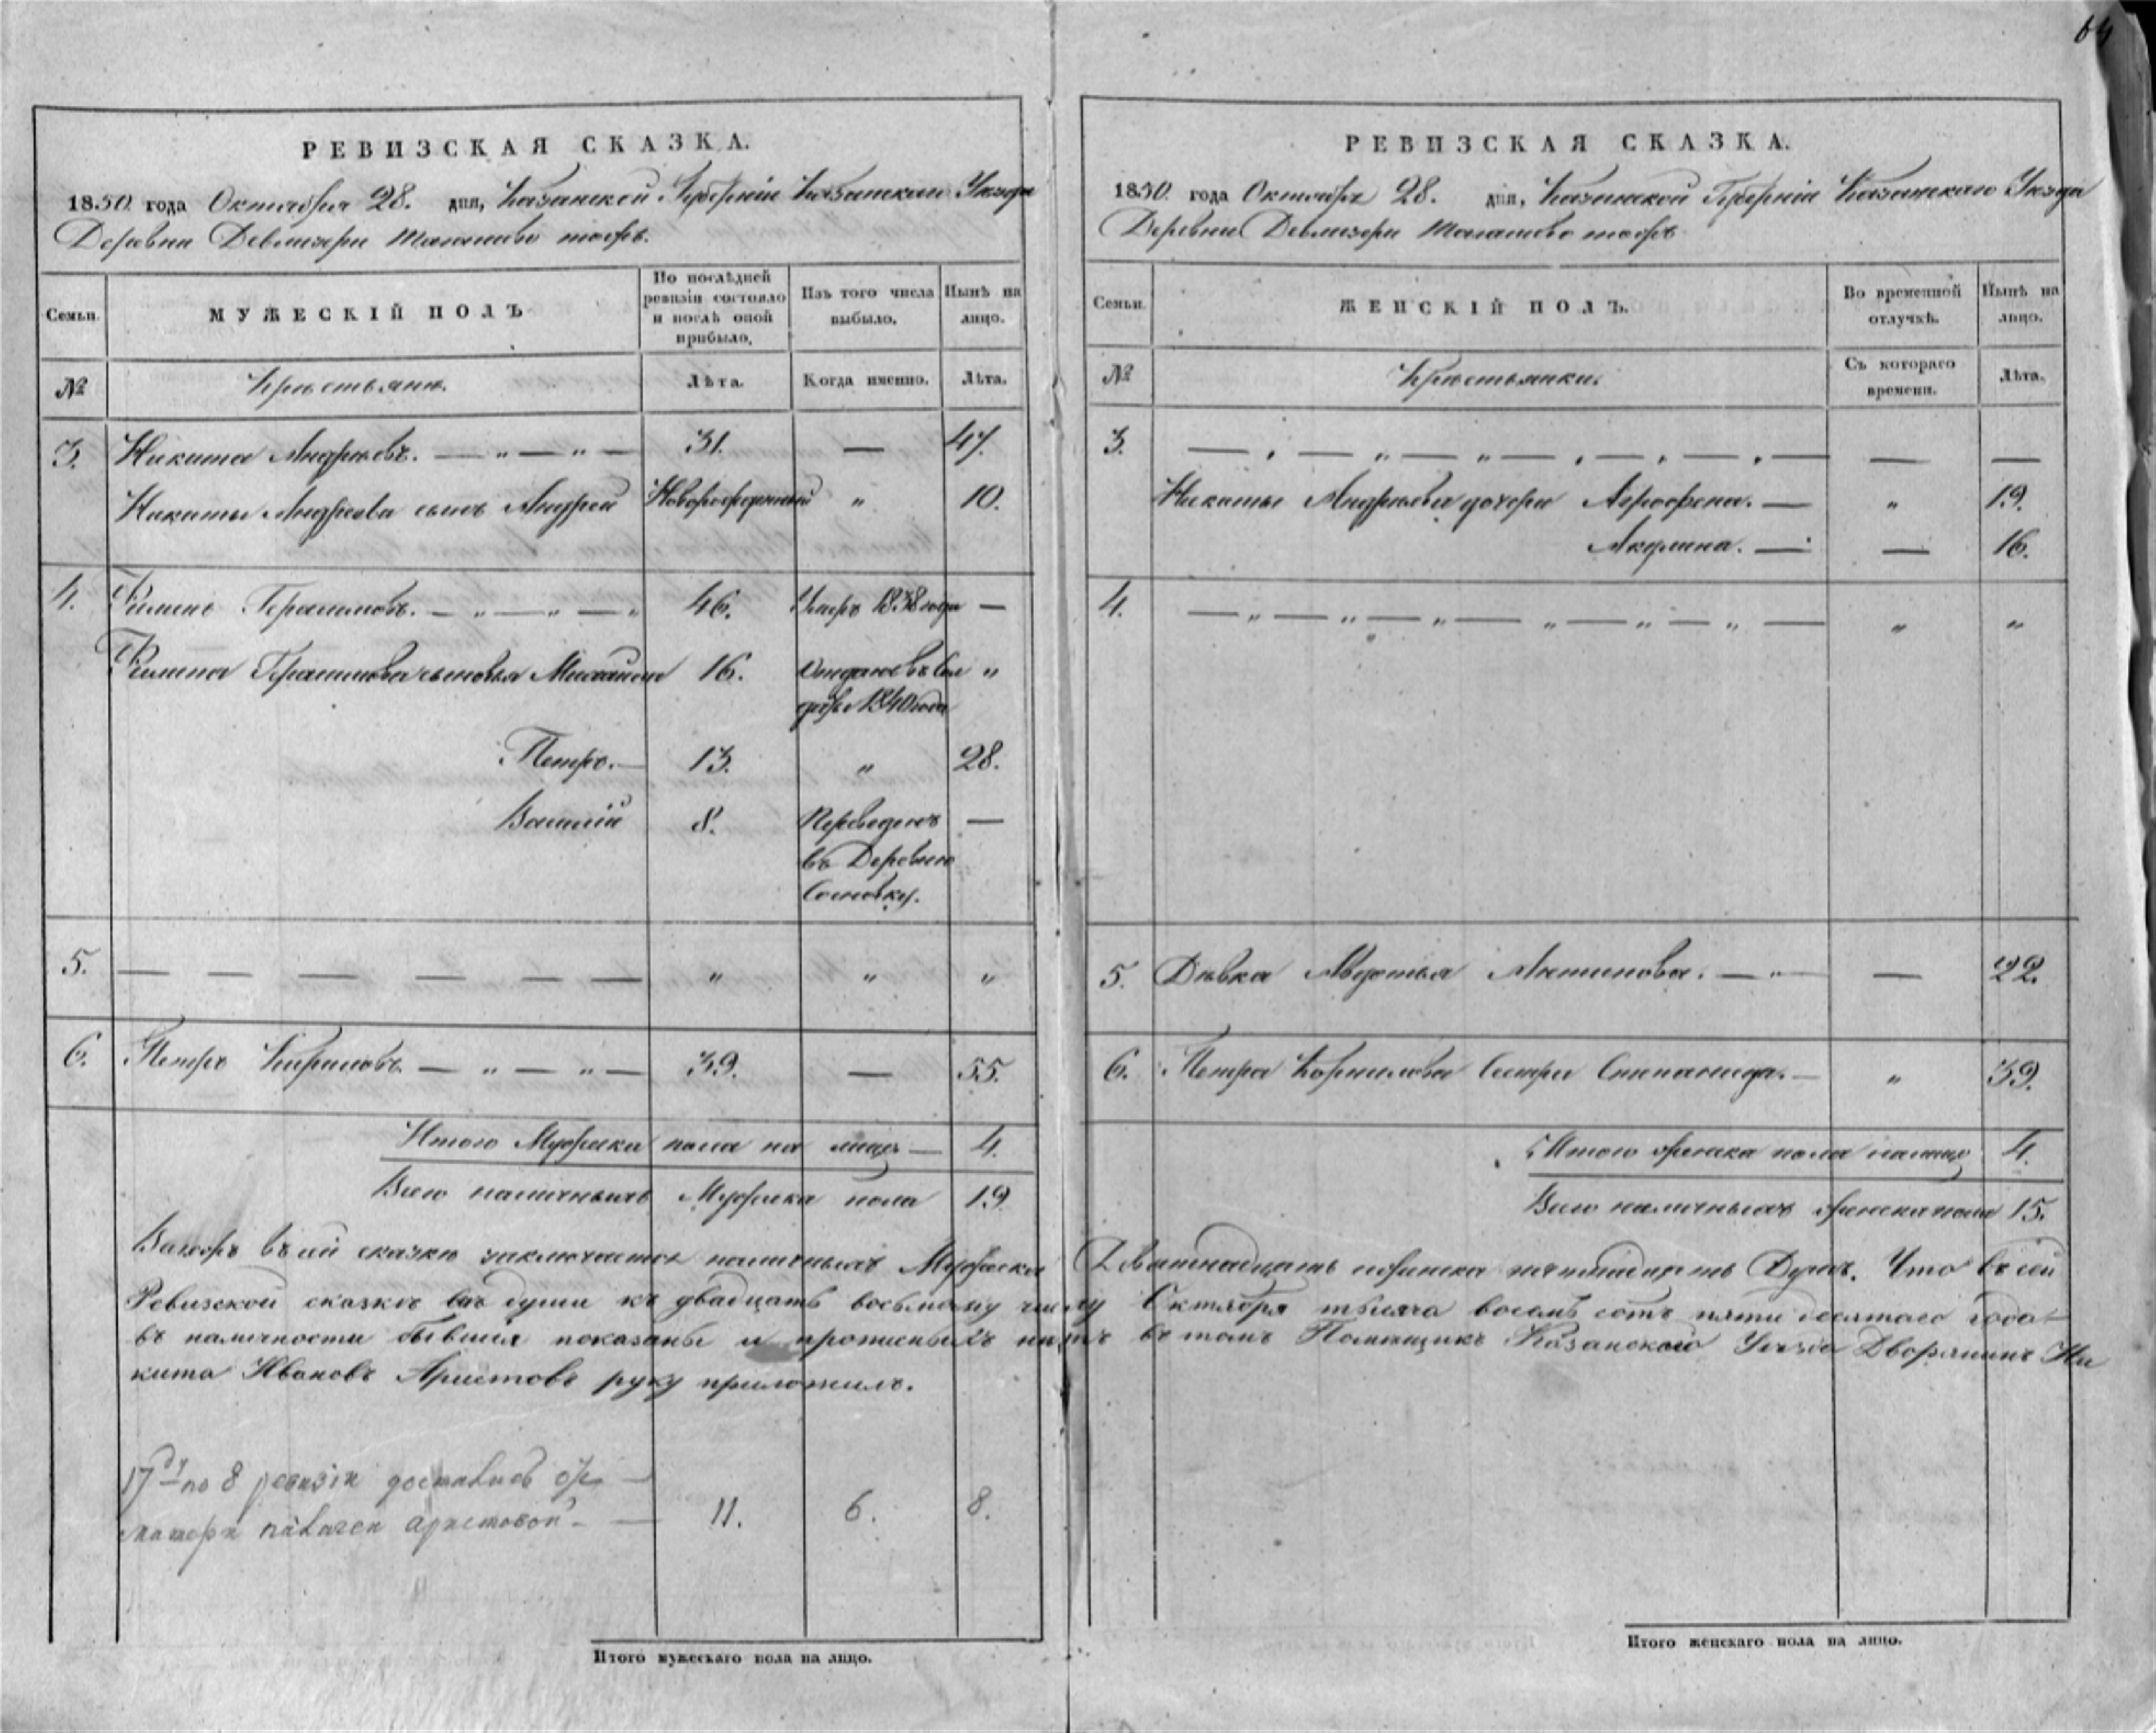 64
РЕВИЗСКАЯ СКАЗКА.
1850. года Октября 28. дня, Казанской Губерніи Казанскаго Уѣзда
Деревни Девлизери
Семьи. МУЖЕСКІЙ ПОЛЪ По послѣдней ревизіи состояло и послѣ оной прибыло, Изъ того числа выбыло. Нынѣ на лицо.
№ Крестьяне. Лѣта. Когда именно. Лѣта.
3. Никита Андреевъ. — „ — „ — 31. — 47.
Никиты Андреева сынъ Андрей Новорожденный „ 10.
4. Герасимовъ. — „ — „ — „ 46. Умеръ 1838 года —
Герасимова сыновья 16. Отданъ въ Сол „
даты 1840 года
Петръ. — 13. „ 28.
Василій 8. Переведенъ —
въ Деревню
Сосновку.
5. — — — — — — „ „ „
6. Петръ — „ — „ — 39. — 55.
Итого Мужеска пола на лицо — 4.
Всего наличныхъ Мужеска пола 19.
РЕВИЗСКАЯ СКАЗКА.
1850. года Октября 28. дня, Казанской Губерніи Казанскаго Уѣзда
Деревни Девлизери
Семьи. ЖЕНСКІЙ ПОЛЪ. Во временной отлучкѣ. Нынѣ на лицо.
№ Крестьянки. Съ котораго времени. Лѣта.
3. — „ — „ — „ — „ — „ — „ — — —
Никиты Андреева дочери Агрофена. — „ 19.
Акулина. — — 16.
4. — „ — „ — „ — „ — „ — „ — „ „
5. Дѣвка Авдотья Антипова. — „ — — 22.
6. Петра Корнилова Сестра Степанида. — „ 39.
Итого женска пола на лицо 4.
Всего наличныхъ женска пола 15.
въ сей сказкѣ заключается наличныхъ Мужеска Девятнадцать женска пятнадцать Душъ. Что въ сей
Ревизской сказкѣ всѣ души къ двадцать восьмому числу Октября тысяча восемь сотъ пяти десятаго года
въ наличности бывшія показаны и прописныхъ нѣтъ въ томъ Помѣщикъ Казанскаго Уезда Дворянинъ Ни
кита Ивановъ Аристовъ руку приложилъ.
17 по 8 ревизіи
матери Аристовой — 11. 6. 8.
Итого мужескаго пола на лицо.
Итого женскаго пола на лицо.